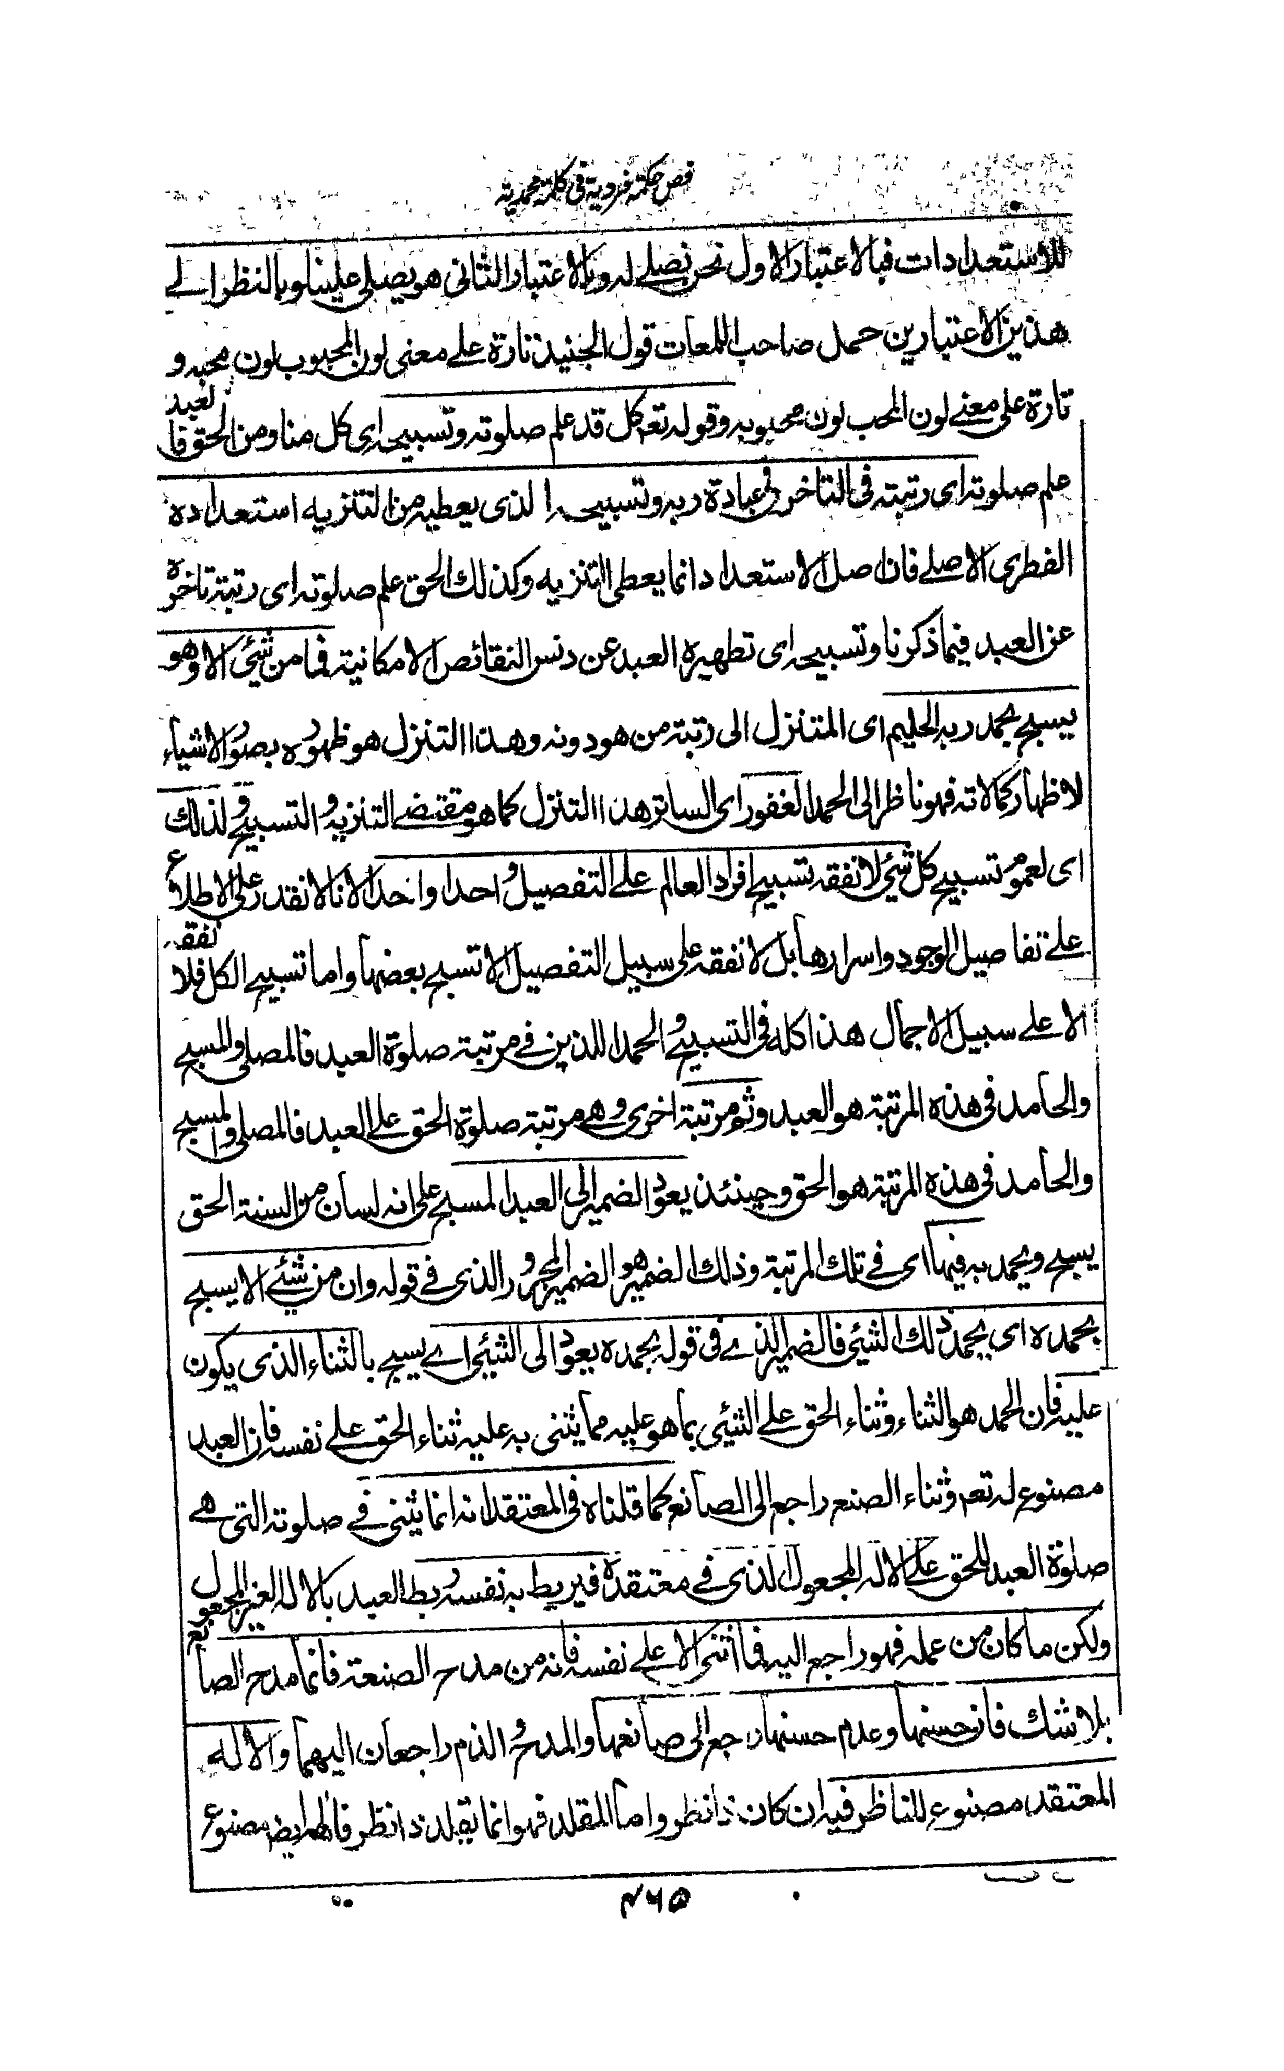 فص حكمة فردية فى كلمة محمدية
للاستعدادات فبالاعتبار الاول نحن نصلے له وبالاعتبار الثانى هو يصلى علينا وبالنظر الے
هذين الاعتبارين حمل صاحب اللمعات قول الجنيد تارة علے معنى لون المحبوب لون محبه و
تارة على معنے لون المحب لون محبوبه وقوله تعه كل قد علم صلوته وتسبيحه اى كل منا ومن الحق فالعبد
علم صلوته اى رتبته فى التاخر فى عبادة ربه وتسبيحه الذى يعطيه من التنزيه استعداده
الفطرى الاصلے فان اصل الاستعداد انما يعطى التنزيه وكذلك الحق علم صلوته اى رتبة تاخره
عن العبد فيما ذكرنا وتسبيحه اى تطهيره العبد عن دنس النقائص الامكانية فما من شئى الا وهو
يسبح بحمد ربه الحليم اى المتنزل الى رتبة من هو دونه وهذا التنزل هو ظهوره بصور الاشياء
لاظهار كمالاته فهو ناظر الى الحمد الغفور اى الساتر هذا التنزل كما هو مقتضے التنزيه والتسبيح ولذلك
اى لعموم تسبيح كل شئى لا نفقه تسبيح افراد العالم علے التفصيل واحدا واحدا لانا لا نقدر على الاطلاع
علے تفاصيل الوجود واسرارها بل لا نفقه على سبيل التفصيل الا تسبيح بعضها واما تسبيح الكل فلا نفقه
الا علے سبيل الاجمال هذا كله فى التسبيح والحمد اللذين فے مرتبة صلوة العبد فالمصلى والمسبح
والحامد فى هذه المرتبة هو العبد وثم مرتبة اخرى وهے مرتبة صلوة الحق علے العبد فالمصلى والمسبح
والحامد فى هذه المرتبة هو الحق وحينئذ يعود الضمير الى العبد المسبح على انه لسان من السنة الحق
يسبح ويحمد به فيها اى فے تلك المرتبة وذلك الضمير هو الضمير المجرور الذى فے قوله وان من شئے الا يسبح
بحمده اى بحمد ذلك الشئى فالضمير الذے فى قوله بحمده يعود الى الشئى اے يسبح بالثناء الذى يكون
عليه فان الحمد هو الثناء وثناء الحق علے الشئى بما هو عليه مما يثنى به عليه ثناء الحق علے نفسه فان العبد
مصنوع له تعه وثناء الصنعه راجع الى الصانع كما قلناه فى المعتقد انه انما يثنى فے صلوته التى هے
صلوة العبد للحق علے الاله المجعول الذى فے معتقده فيربط به نفسه ربط العبد بالاله الغير المجعول
ولكن ما كان من عمله فهو راجع اليه فما اثنى الا علے نفسه فانه من مدح الصنعة فانما مدح الصانع
بلا شك فان حسنها وعدم حسنها راجع الى صانعها والمدح والذم راجعان اليهما والاله
المعتقد مصنوع للناظر فيه ان كان ذا نظر واما المقلد فهو انما يقلد ذا نظر فالهه ايضا مصنوع
۴۶۵